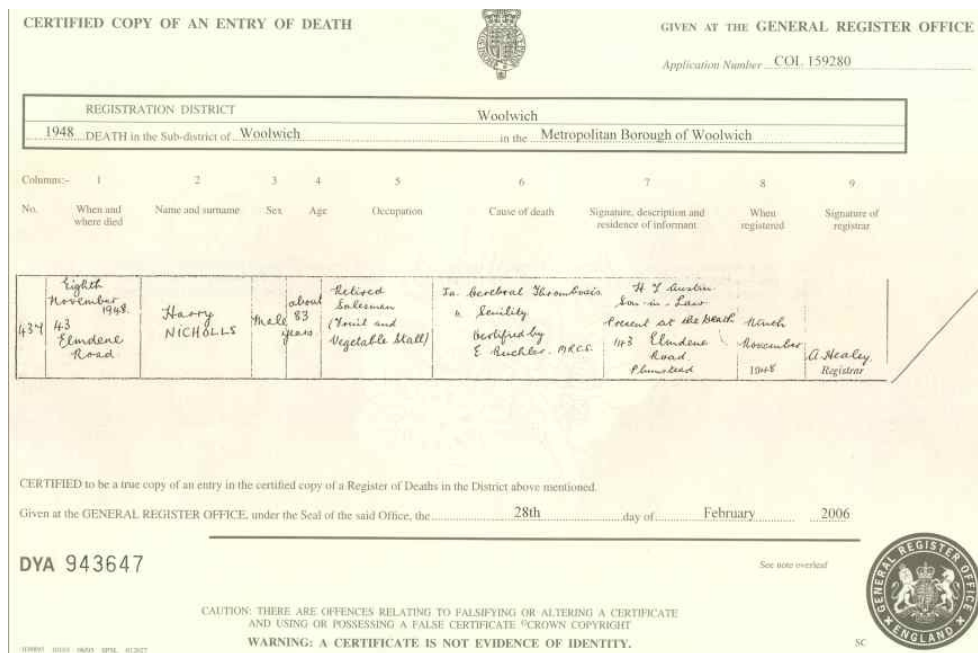 CERTIFIED COPY OF AN ENTRY OF DEATH
GIVEN AT THE GENERAL REGISTER OFFICE
Application Number COL 159280
REGISTRATION DISTRICT Woolwich
1948 DEATH in the Sub-district of Woolwich in the Metropolitan Borough of Woolwich
Columns:- 1 2 3 4 5 6 7 8 9
No. When and where died Name and surname Sex Age Occupation Cause of death Signature, description and residence of informant When registered Signature of registrar
437
Eighth
November
1948.
43
Elmdene
Road
Harry
NICHOLLS
Male
about
83
years
Retired
Salesman
(Fruit and
Vegetable Stall)
Ia. Cerebral Thrombosis
Senility
Certified by
E M.R.C.S.
H Y Austin
Son-in-Law
Present at the Death
43 Elmdene
Road
Plumstead
Ninth
November
1948
A Healey
Registrar
CERTIFIED to be a true copy of an entry in the certified copy of a Register of Deaths in the District above mentioned.
Given at the GENERAL REGISTER OFFICE, under the Seal of the said Office, the 28th day of February 2006
DYA 943647
See note overleaf
CAUTION: THERE ARE OFFENCES RELATING TO FALSIFYING OR ALTERING A CERTIFICATE
AND USING OR POSSESSING A FALSE CERTIFICATE ©CROWN COPYRIGHT
WARNING: A CERTIFICATE IS NOT EVIDENCE OF IDENTITY.
SC
GENERAL REGISTER OFFICE
ENGLAND